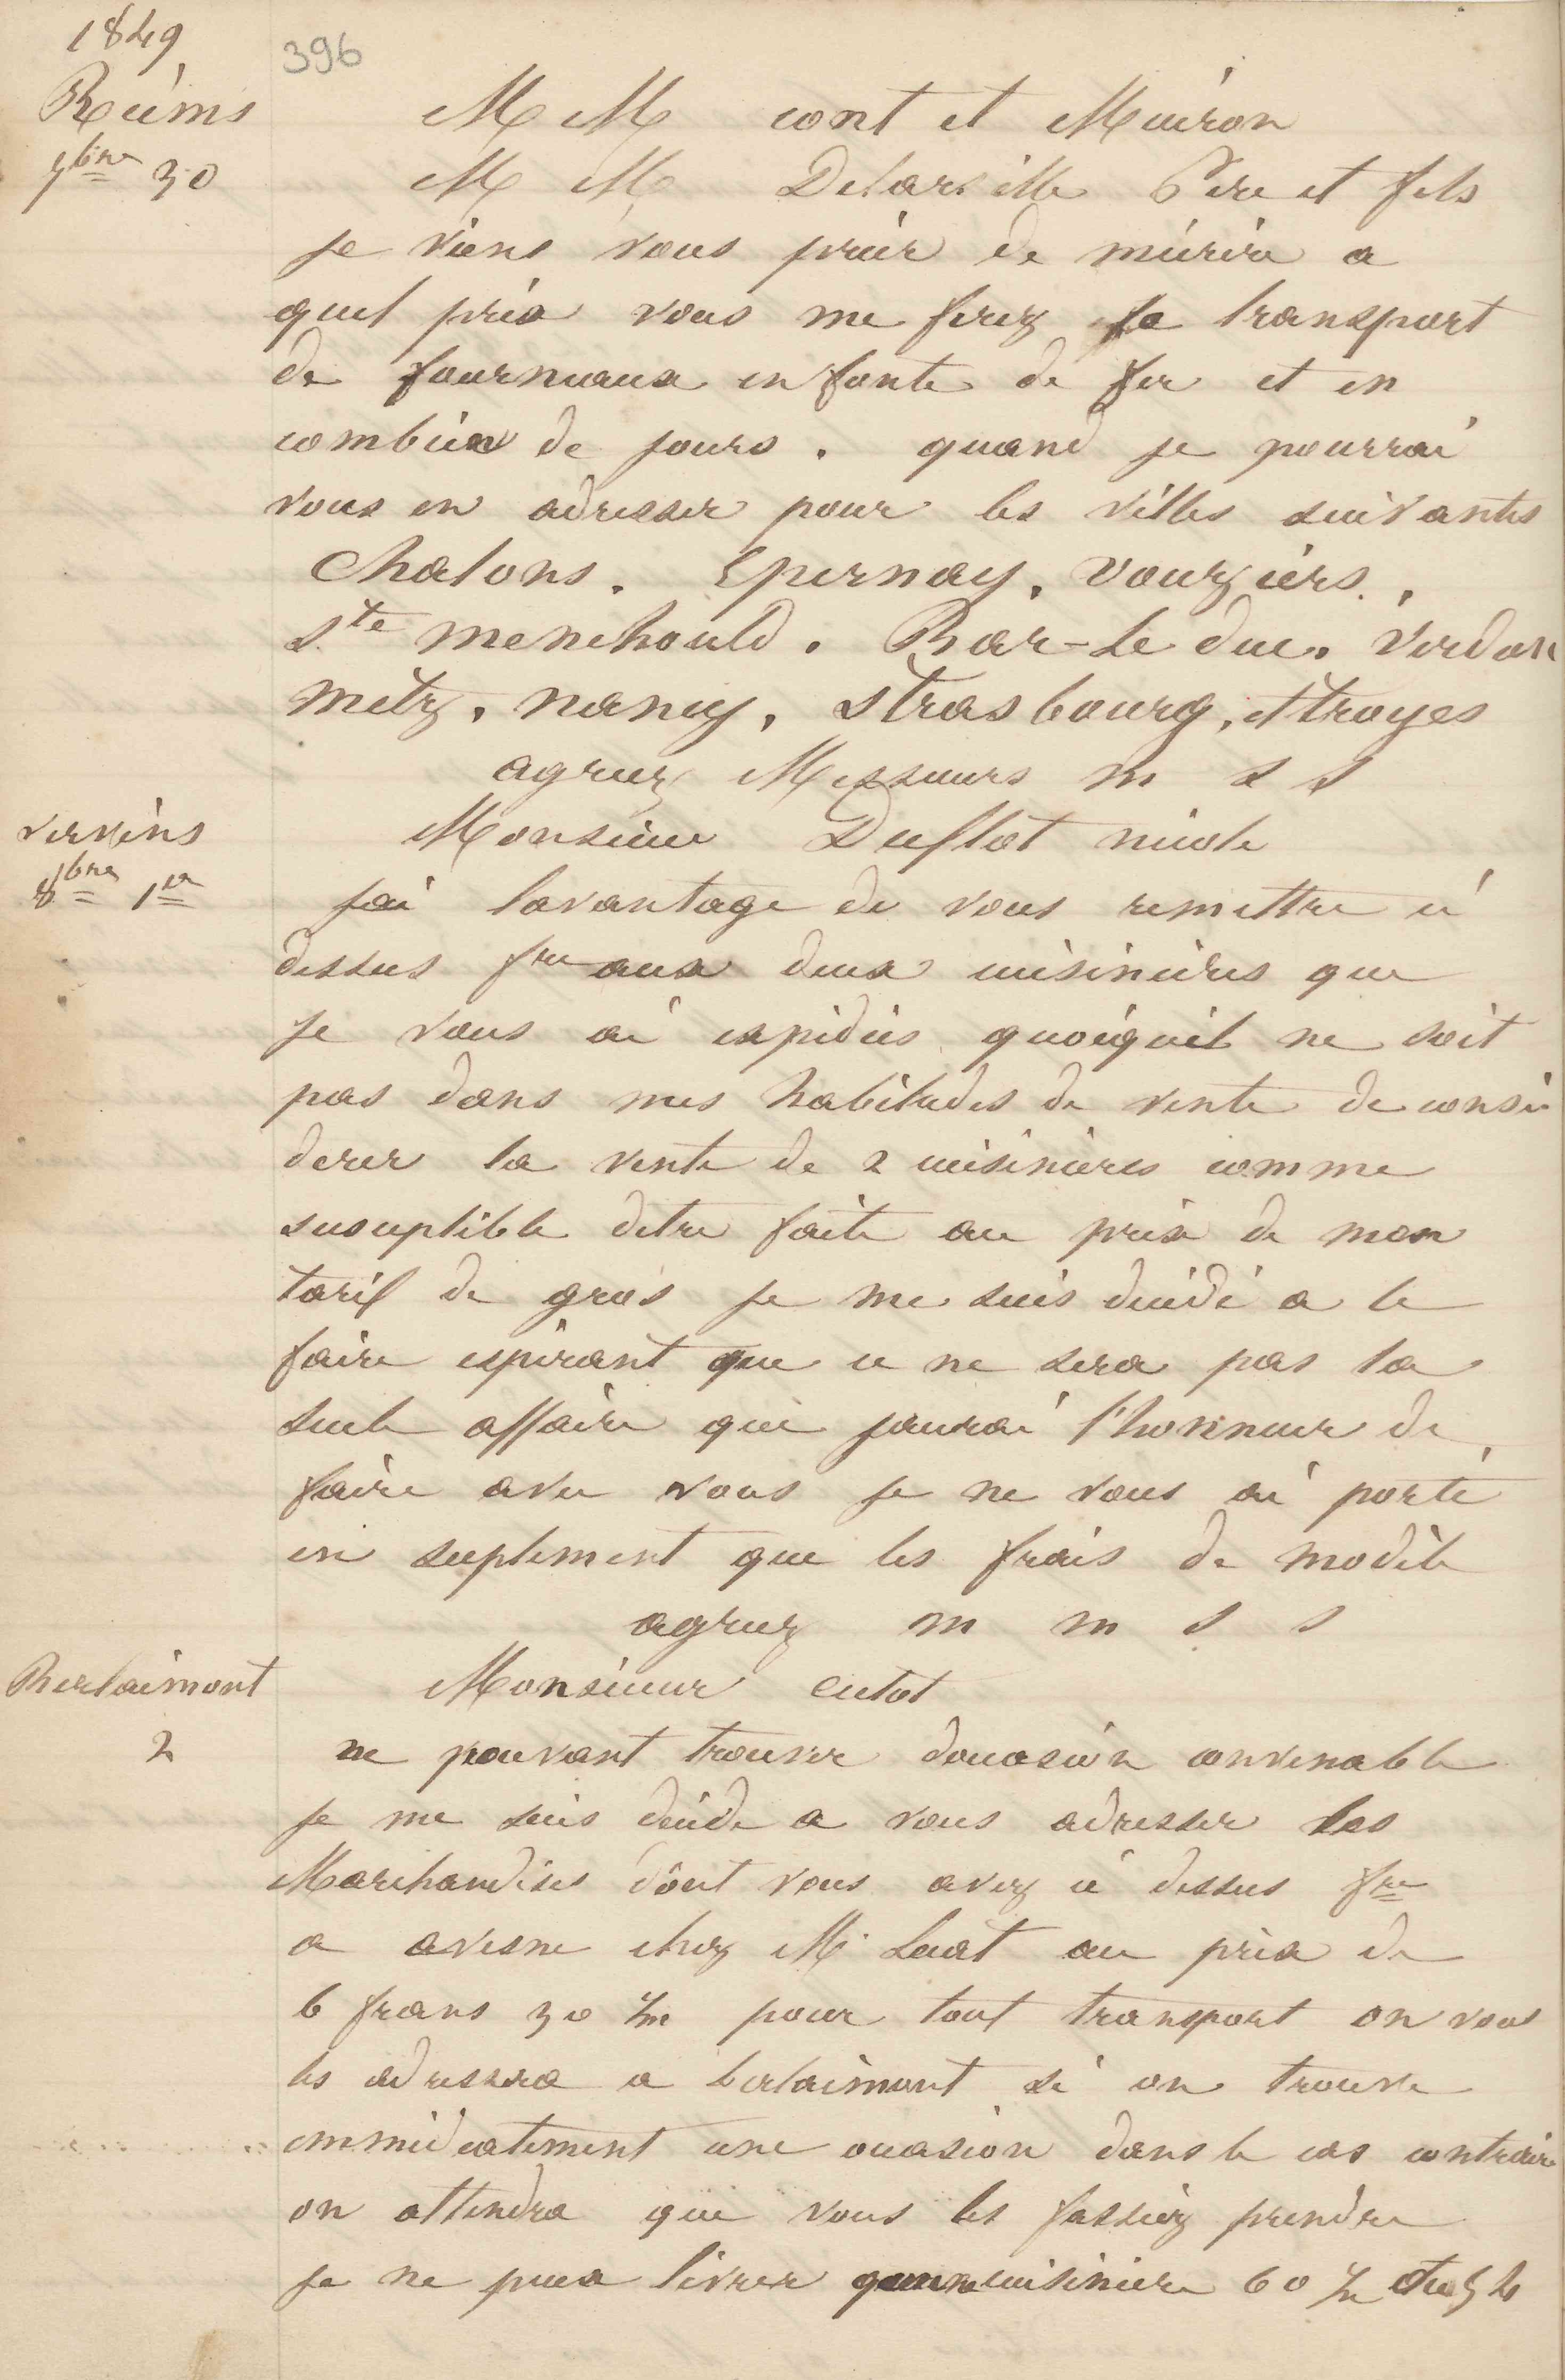 1849
396
Reims
7bre 30
M M cont et Muiron
M M Delarsille Pere et fils
je viens vous prier de mécrire a
quel prix vous me ferez le transport
de fourneaux en fonte de fer et en
combien de jours. quand je pourrai
vous en adresser pour les villes suivantes
Chalons. Epernay. vouziers.,
Ste menehould. Bar-Le duc. Verdun
metz. nancy. Strasbourg, et troyes
agreez Messieurs m s s
vervins
8bre 1er
Monsieur Duflot nicole
jai lavantage de vous remettre ci
dessus fre aux deux cuisinières que
je vous ai expédiés quoiquil ne soit
pas dans mes habitudes de vente de consi
derer la vente de 2 cuisinières comme
suseptible detre faite au prix de mon
tarif de gros je me suis décidé a le
faire espérant que ce ne sera pas la
seule affaire que jaurai l'honneur de
faire avec vous je ne vous ai porté
en suplement que les frais de modèle
agreez m m s s
Berlaimont
2
Monsieur cutot
ne pouvant trouver docasion convenable
je me suis décide a vous adresser les
Marchandises dont vous avez ci dessus fre
a avesne chez Mr Luat au prix de
6 frans 30 %m pour tout transport on vous
les adressra a berlaimont si on trouve
immédiatement une ocasion dans le cas contraire
on attendra que vous les fassiez prendre
je ne peux livrer quune cuisiniere 60 %